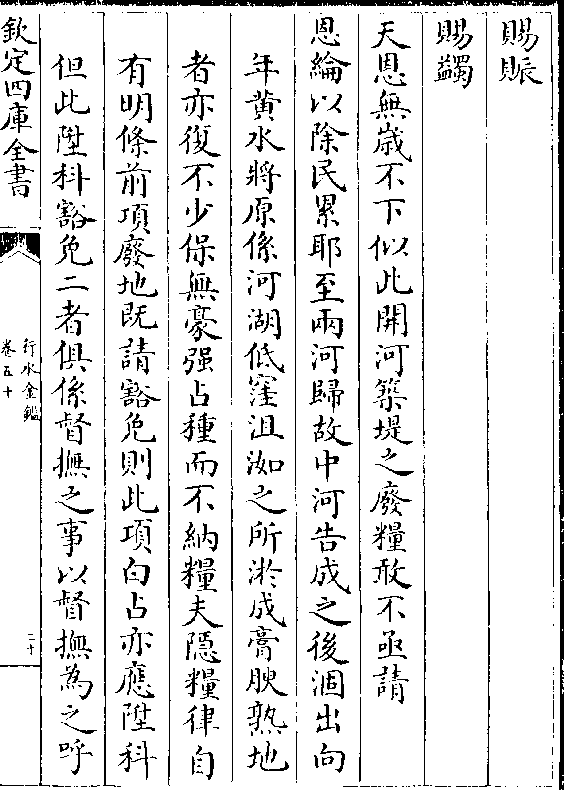 賜賑
賜蠲
天恩無歲不下似此開河築堤之廢糧敢不亟請
恩綸以除民累耶至兩河歸故中河告成之後涸出向
年黄水將原係河湖低窪沮洳之所淤成膏腴熟地
者亦復不少保無豪强占種而不納糧夫隱糧律自
有明條前項廢地既請豁免則此項白占亦應陞科
但此陞科豁免二者俱係督撫之事以督撫為之呼
欽定四庫全書
行水金鑑
卷五十
二十